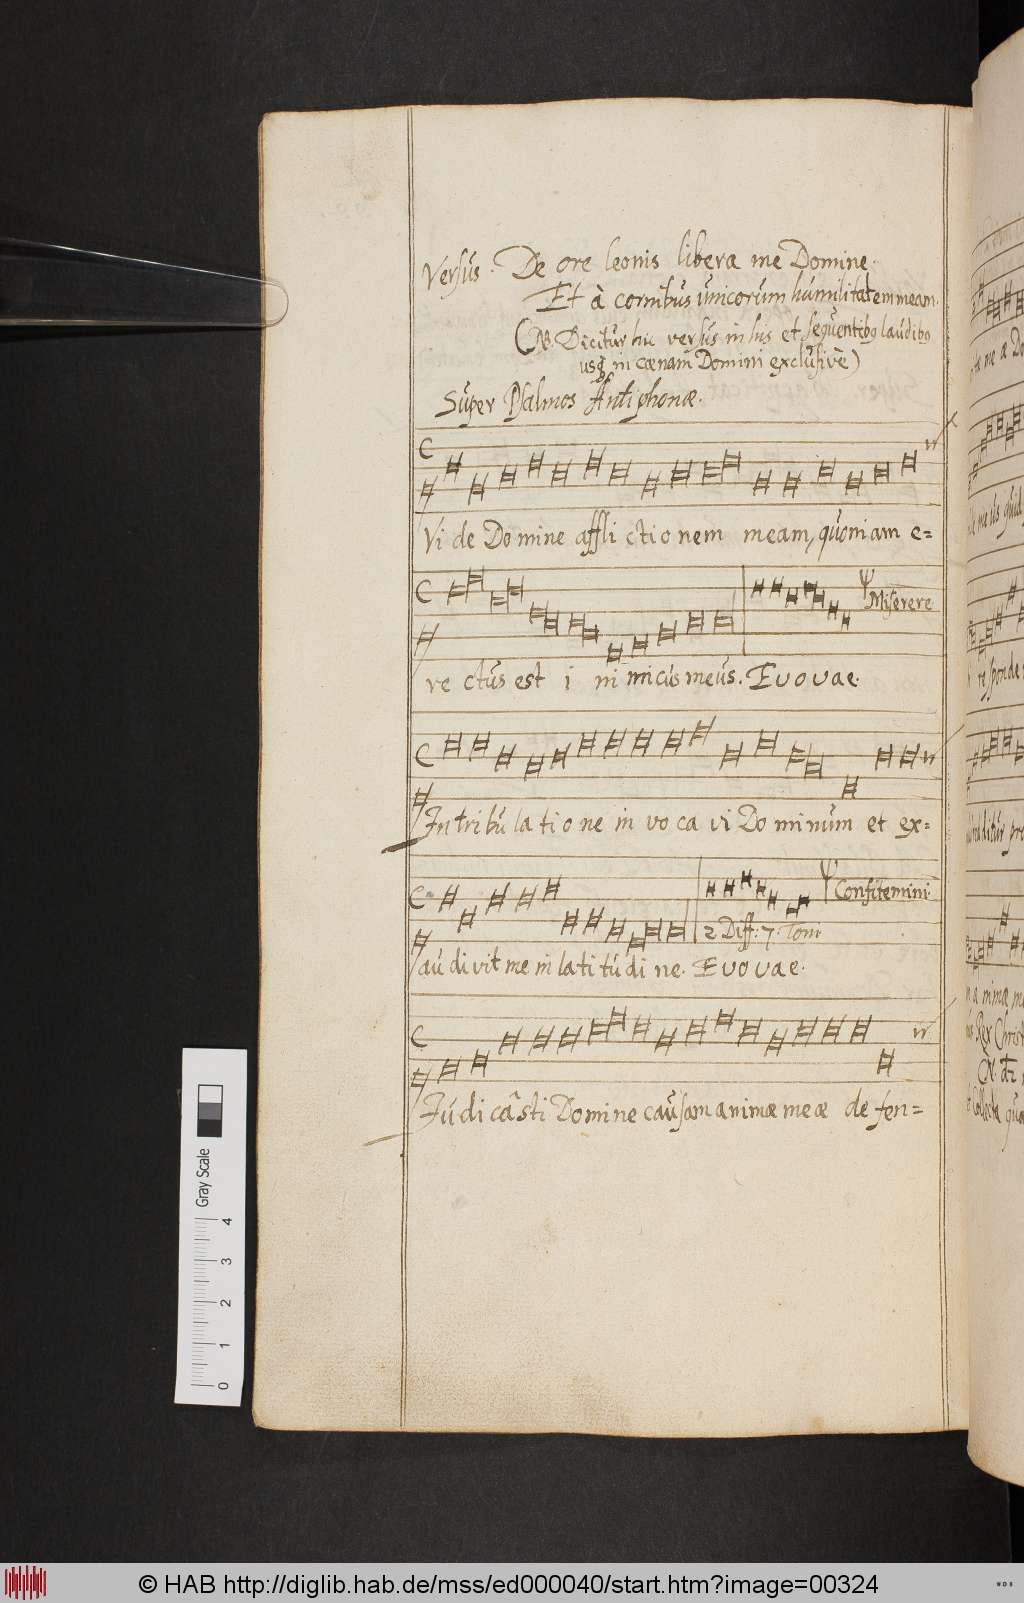 Versus. De ore leonis libera me Domine.
Et à cornibus unicorum humilitatem meam.
(NB. Dicitur hic versus in his et sequentibq laudibq
usq in cœnam Domini exclusivè)
Super Psalmos Antiphonæ.
Vi de Do mine affli ctio nem meam, quoniam e=
Miserere
re ctus est i ni micus meus. Euouae.
In tribu la tio ne in vo ca vi Do minum et ex=
Confitemini
2 Diff: 7. Toni
au di vit me in la ti tu di ne. Euouae.
Iu di casti Domine causam animæ meæ de fen=
Gray Scale
4
3
2
1
0
© HAB http://diglib.hab.de/mss/ed000040/start.htm?image=00324